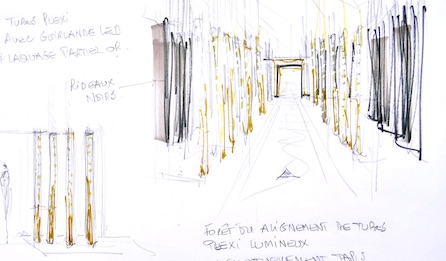 TUBES PLEXI
AVEC GUIRLANDE LED
LAQUAGE PARTIEL OR.
RIDEAUX
NOIRS
FORÊT DU ALIGNEMENT DE TUBES
PLEXI LUMINEUX
TAPIS